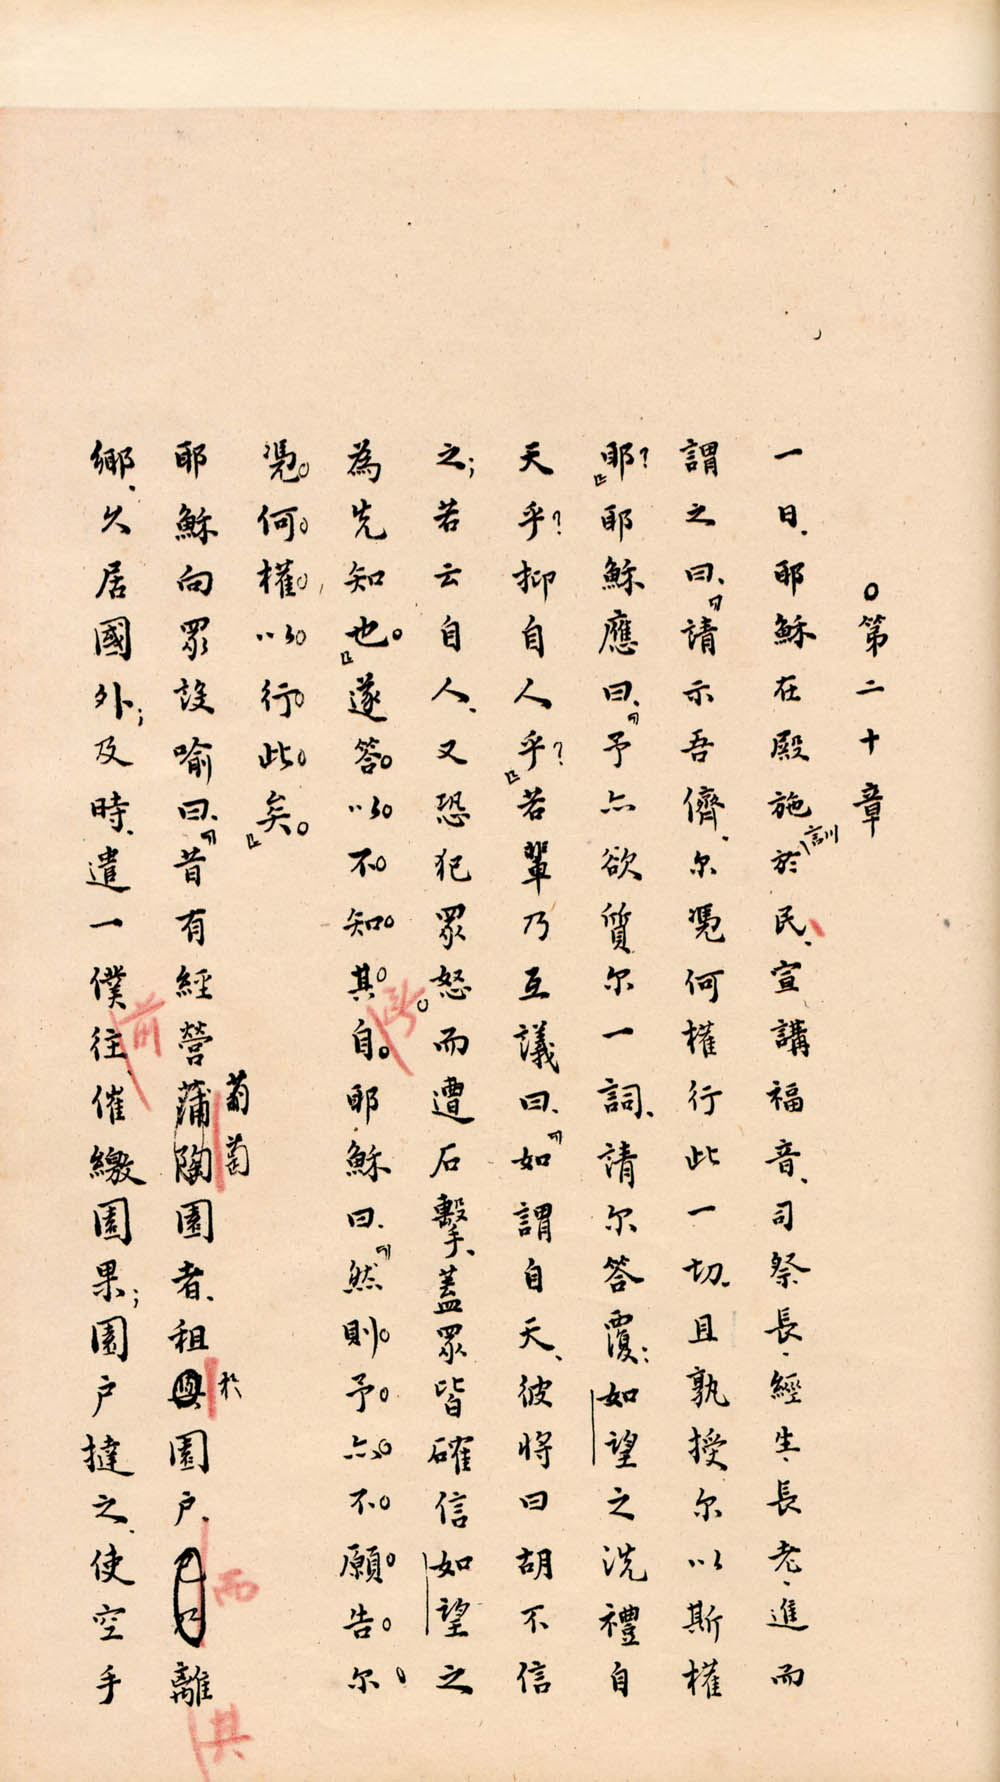 ○第二十章
一日、耶穌在殿施訓於民、宣講福音、司祭長、經生、長老、進而
謂之曰、「請示吾儕、尔憑何權行此一切、且孰授尔以斯權
耶?」耶穌應曰、「予亦欲質尔一詞、請尔答覆:如望之洗禮自
天乎?抑自人乎?」若輩乃互議曰、「如謂自天、彼將曰胡不信
之;若云自人、又恐犯眾怒而遭石擊、蓋眾皆確信如望之
為先知也。」遂答以不知其所自。耶穌曰、「然則予亦不願告尔、
憑何權以行此矣。」
耶穌向眾設喻曰、「昔有經營葡萄園者、租於園戶、而離其
鄉、久居國外;及時、遣一僕前往、催繳園果;園戶撻之、使空手